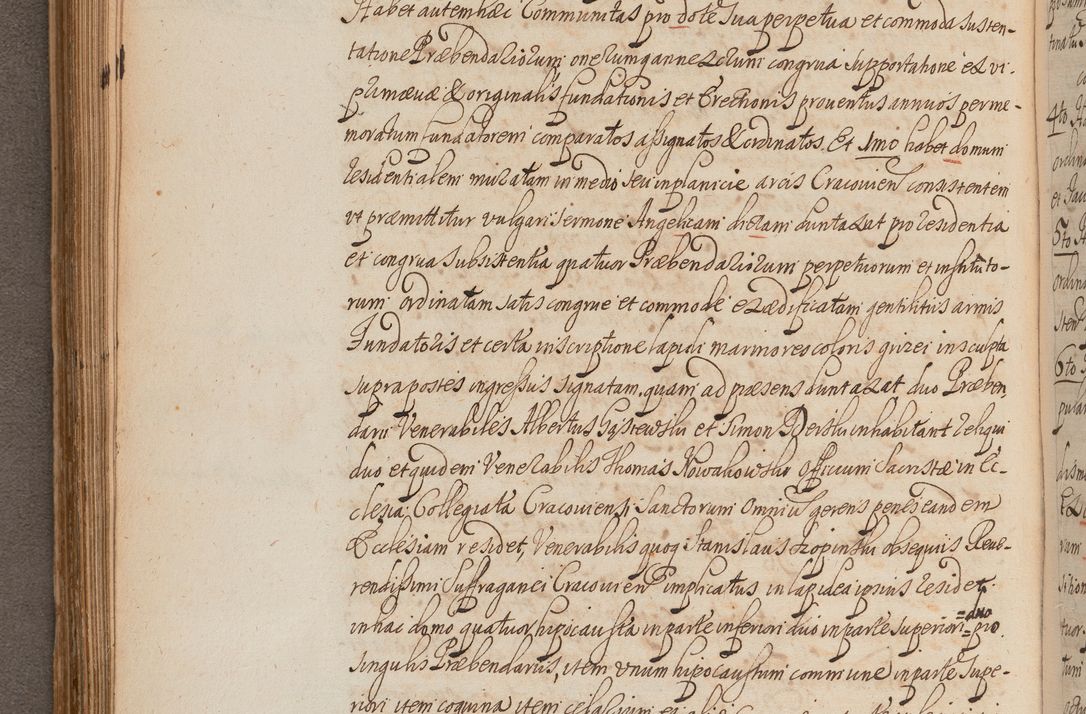 Habet autem hæc Communitas pro dote sua perpetua et commoda susten-
tatione Præbendariorum onerumq; annexorum congrua supportatione ex vi
primævæ & originalis fundationis et Erectionis proventus annuos per me-
moratum fundatorem comparatos assignatos & ordinatos. Et 1mo habet domum
residentialem muratam in medio seu in planicie arcis Cracovien consistentem
vt præmittitur vulgari sermone Angelicam dictam duntaxat pro residentia
et congrua subsistentia quatuor Præbendariorum perpetuorum et instituto-
rum ordinatam satis congrue et commode exædificatam gentilitiis armis
Fundatoris et certa inscriptione lapidi marmoreo coloris grizei insculpta
supra postes ingressus signatam, quam ad præsens duntaxat duo Præben
darii Venerabiles Albertus et Simon inhabitant reliqui
duo et quidem Venerabilis Thomas Nowakowski officium Sacristæ in Ec-
clesia Collegiata Cracoviensi Sanctorum Omniū gerens penes eandem
Ecclesiam residet, Venerabilis quoq; Stanislaus obsequiis Reve-
rendissimi Suffraganei Cracovien implicatus in lapidea ipsius residet.
in hac domo quatuor hipocausta in parte inferiori duo in parte superiori =duo= pro
singulis Præbendariis, item vnum hipocaustum commune in parte supe-
riori item coquina item